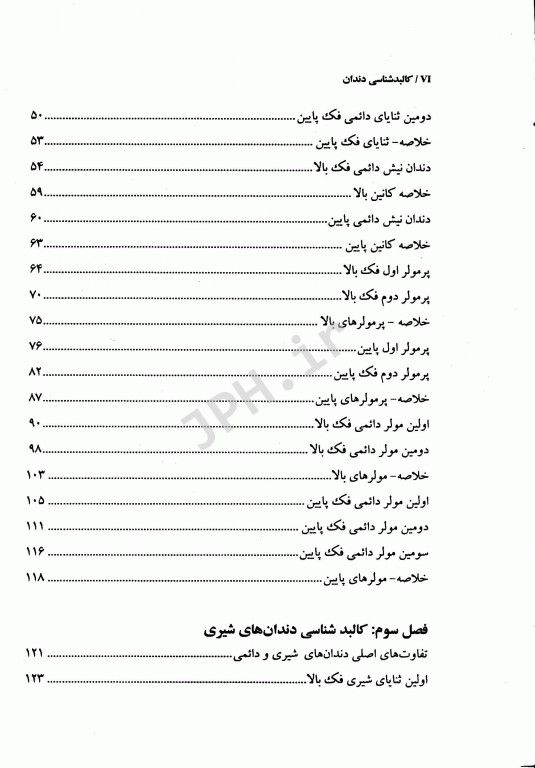 VI / کالبدشناسی دندان
دومین ثنایای دائمی فک پایین ... ۵۰
خلاصه- ثنایای فک پایین ... ۵۳
دندان نیش دائمی فک بالا ... ۵۴
خلاصه کانین بالا ... ۵۹
دندان نیش دائمی پایین ... ۶۰
خلاصه کانین پایین ... ۶۳
پرمولر اول فک بالا ... ۶۴
پرمولر دوم فک بالا ... ۷۰
خلاصه - پرمولرهای بالا ... ۷۵
پرمولر اول پایین ... ۷۶
پرمولر دوم فک پایین ... ۸۲
خلاصه- پرمولرهای پایین ... ۸۷
اولین مولر دائمی فک بالا ... ۹۰
دومین مولر دائمی فک بالا ... ۹۸
خلاصه- مولرهای بالا ... ۱۰۳
اولین مولر دائمی فک پایین ... ۱۰۵
دومین مولر دائمی فک پایین ... ۱۱۱
سومین مولر دائمی فک پایین ... ۱۱۶
خلاصه- مولرهای پایین ... ۱۱۸
فصل سوم: کالبد شناسی دندان‌های شیری
تفاوت‌های اصلی دندان‌های شیری و دائمی ... ۱۲۱
اولین ثنایای شیری فک بالا ... ۱۲۳
JPH.ir